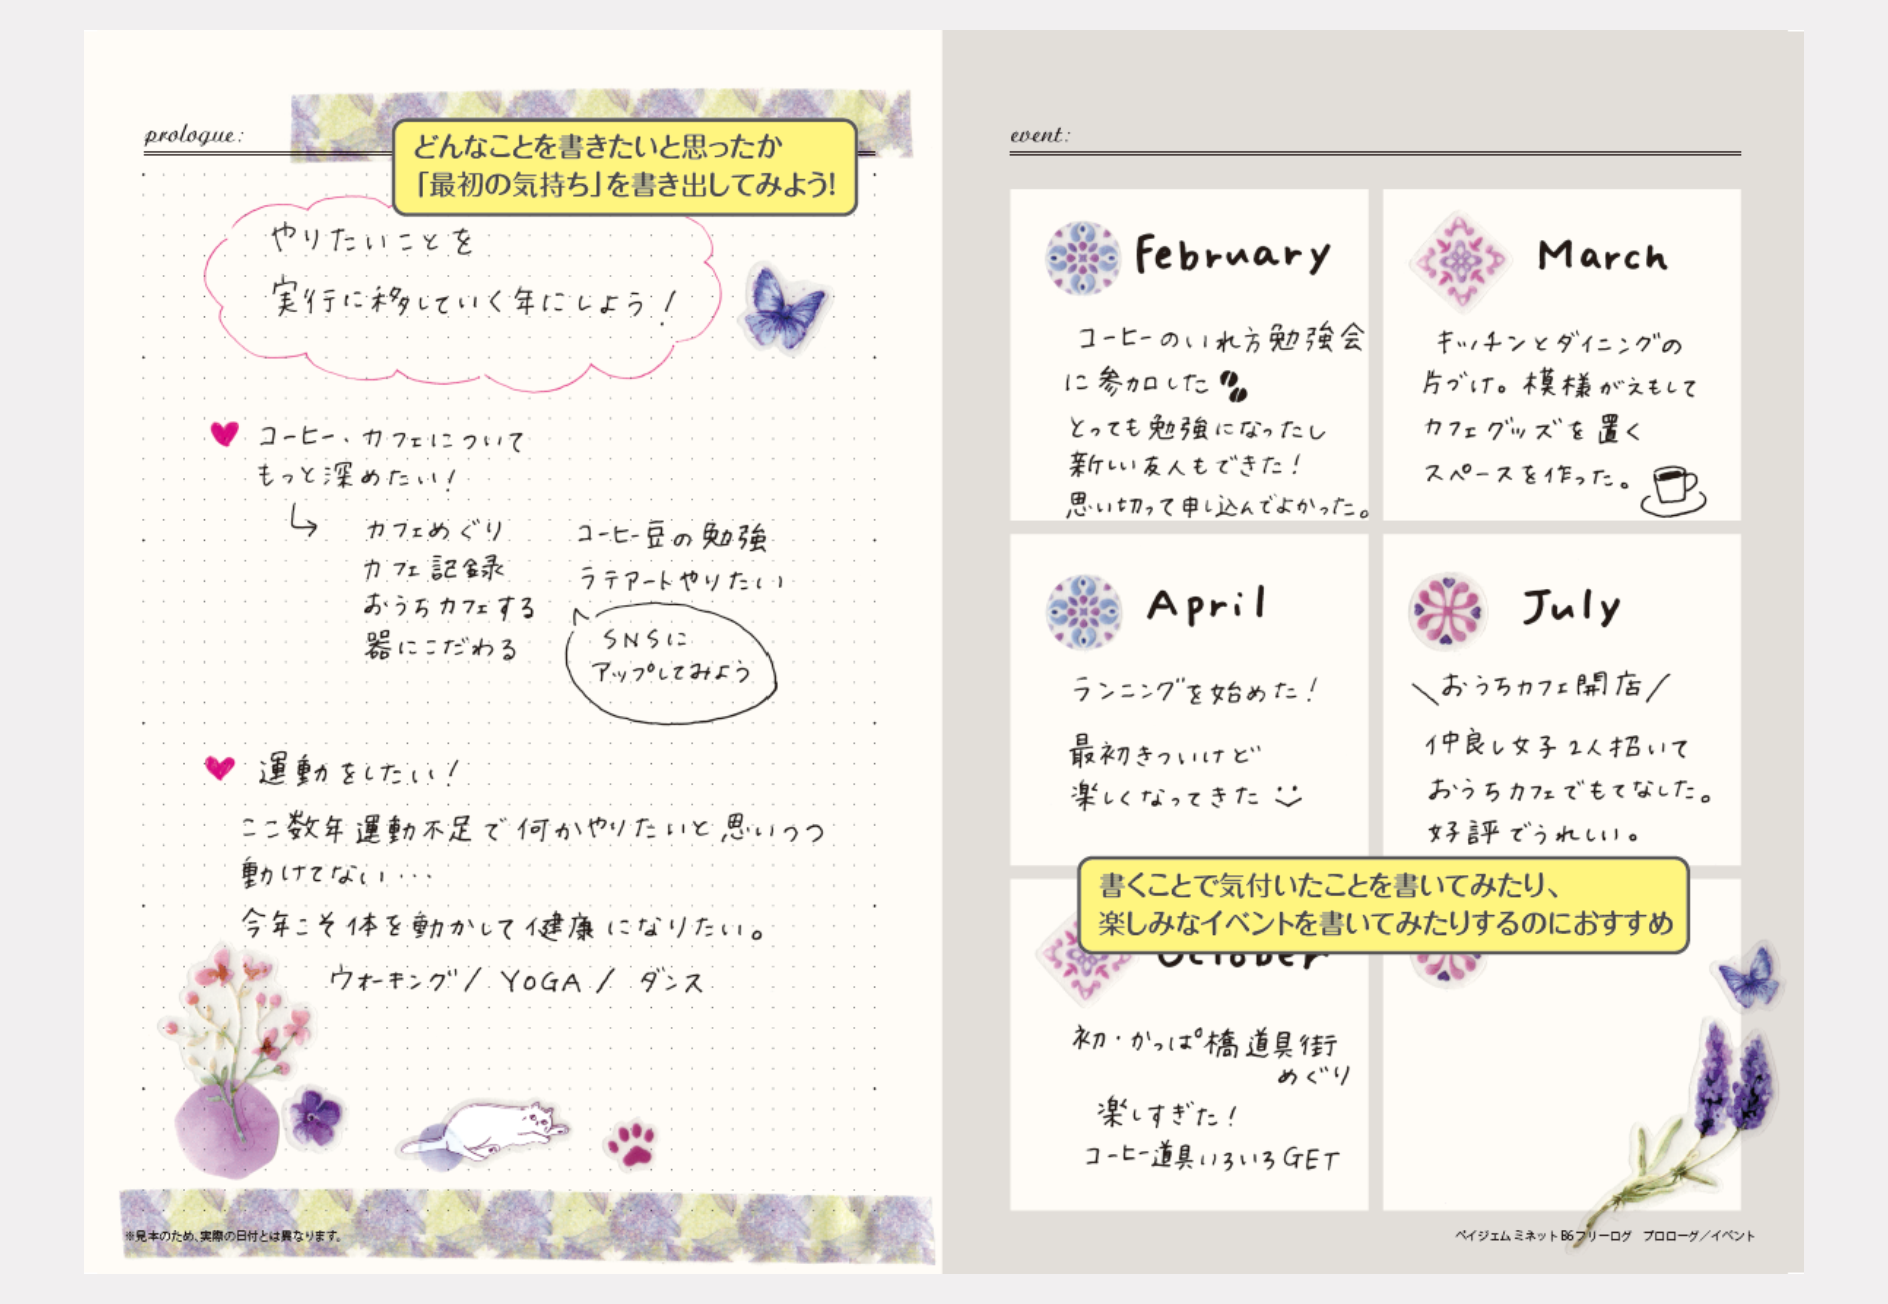 prologue:
どんなことを書きたいと思ったか
「最初の気持ち」を書き出してみよう!
やりたいことを
実行に移していく年にしよう!
コーヒー、カフェについて
もっと深めたい!
カフェめぐり
カフェ記録
おうちカフェする
器にこだわる
コーヒー豆の勉強
ラテアートやりたい
SNSに
アップしてみよう
運動をしたい!
ここ数年運動不足で何かやりたいと思いつつ
動けてない…
今年こそ体を動かして健康になりたい。
ウォーキング/ YOGA / ダンス
※見本のため、実際の日付とは異なります。
event:
February
コーヒーのいれ方勉強会
に参加した
とっても勉強になったし
新しい友人もできた!
思い切って申し込んでよかった。
March
キッチンとダイニングの
片づけ。模様がえもして
カフェグッズを置く
スペースを作った。
April
ランニングを始めた!
最初きついけど
楽しくなってきた
July
\おうちカフェ開店/
仲良し女子2人招いて
おうちカフェでもてなした。
好評でうれしい。
書くことで気付いたことを書いてみたり、
楽しみなイベントを書いてみたりするのにおすすめ
October
初・かっぱ橋道具街
めぐり
楽しすぎた!
コーヒー道具いろいろGET
ペイジェム ミネット B6フリーログ プロローグ/イベント